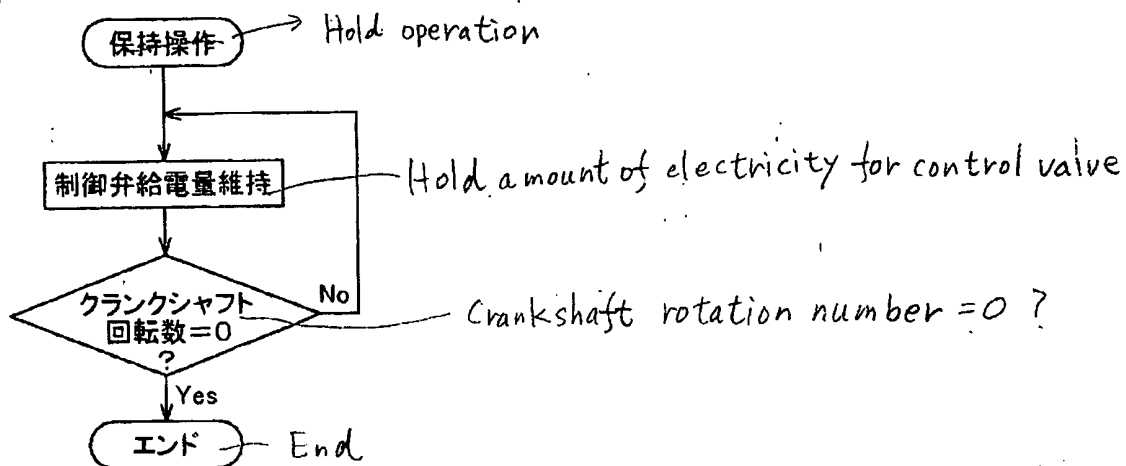 保持操作
Hold operation
制御弁給電量維持
Hold amount of electricity for control valve
クランクシャフト
回転数=0
?
No
Crankshaft rotation number =0 ?
Yes
エンド
End